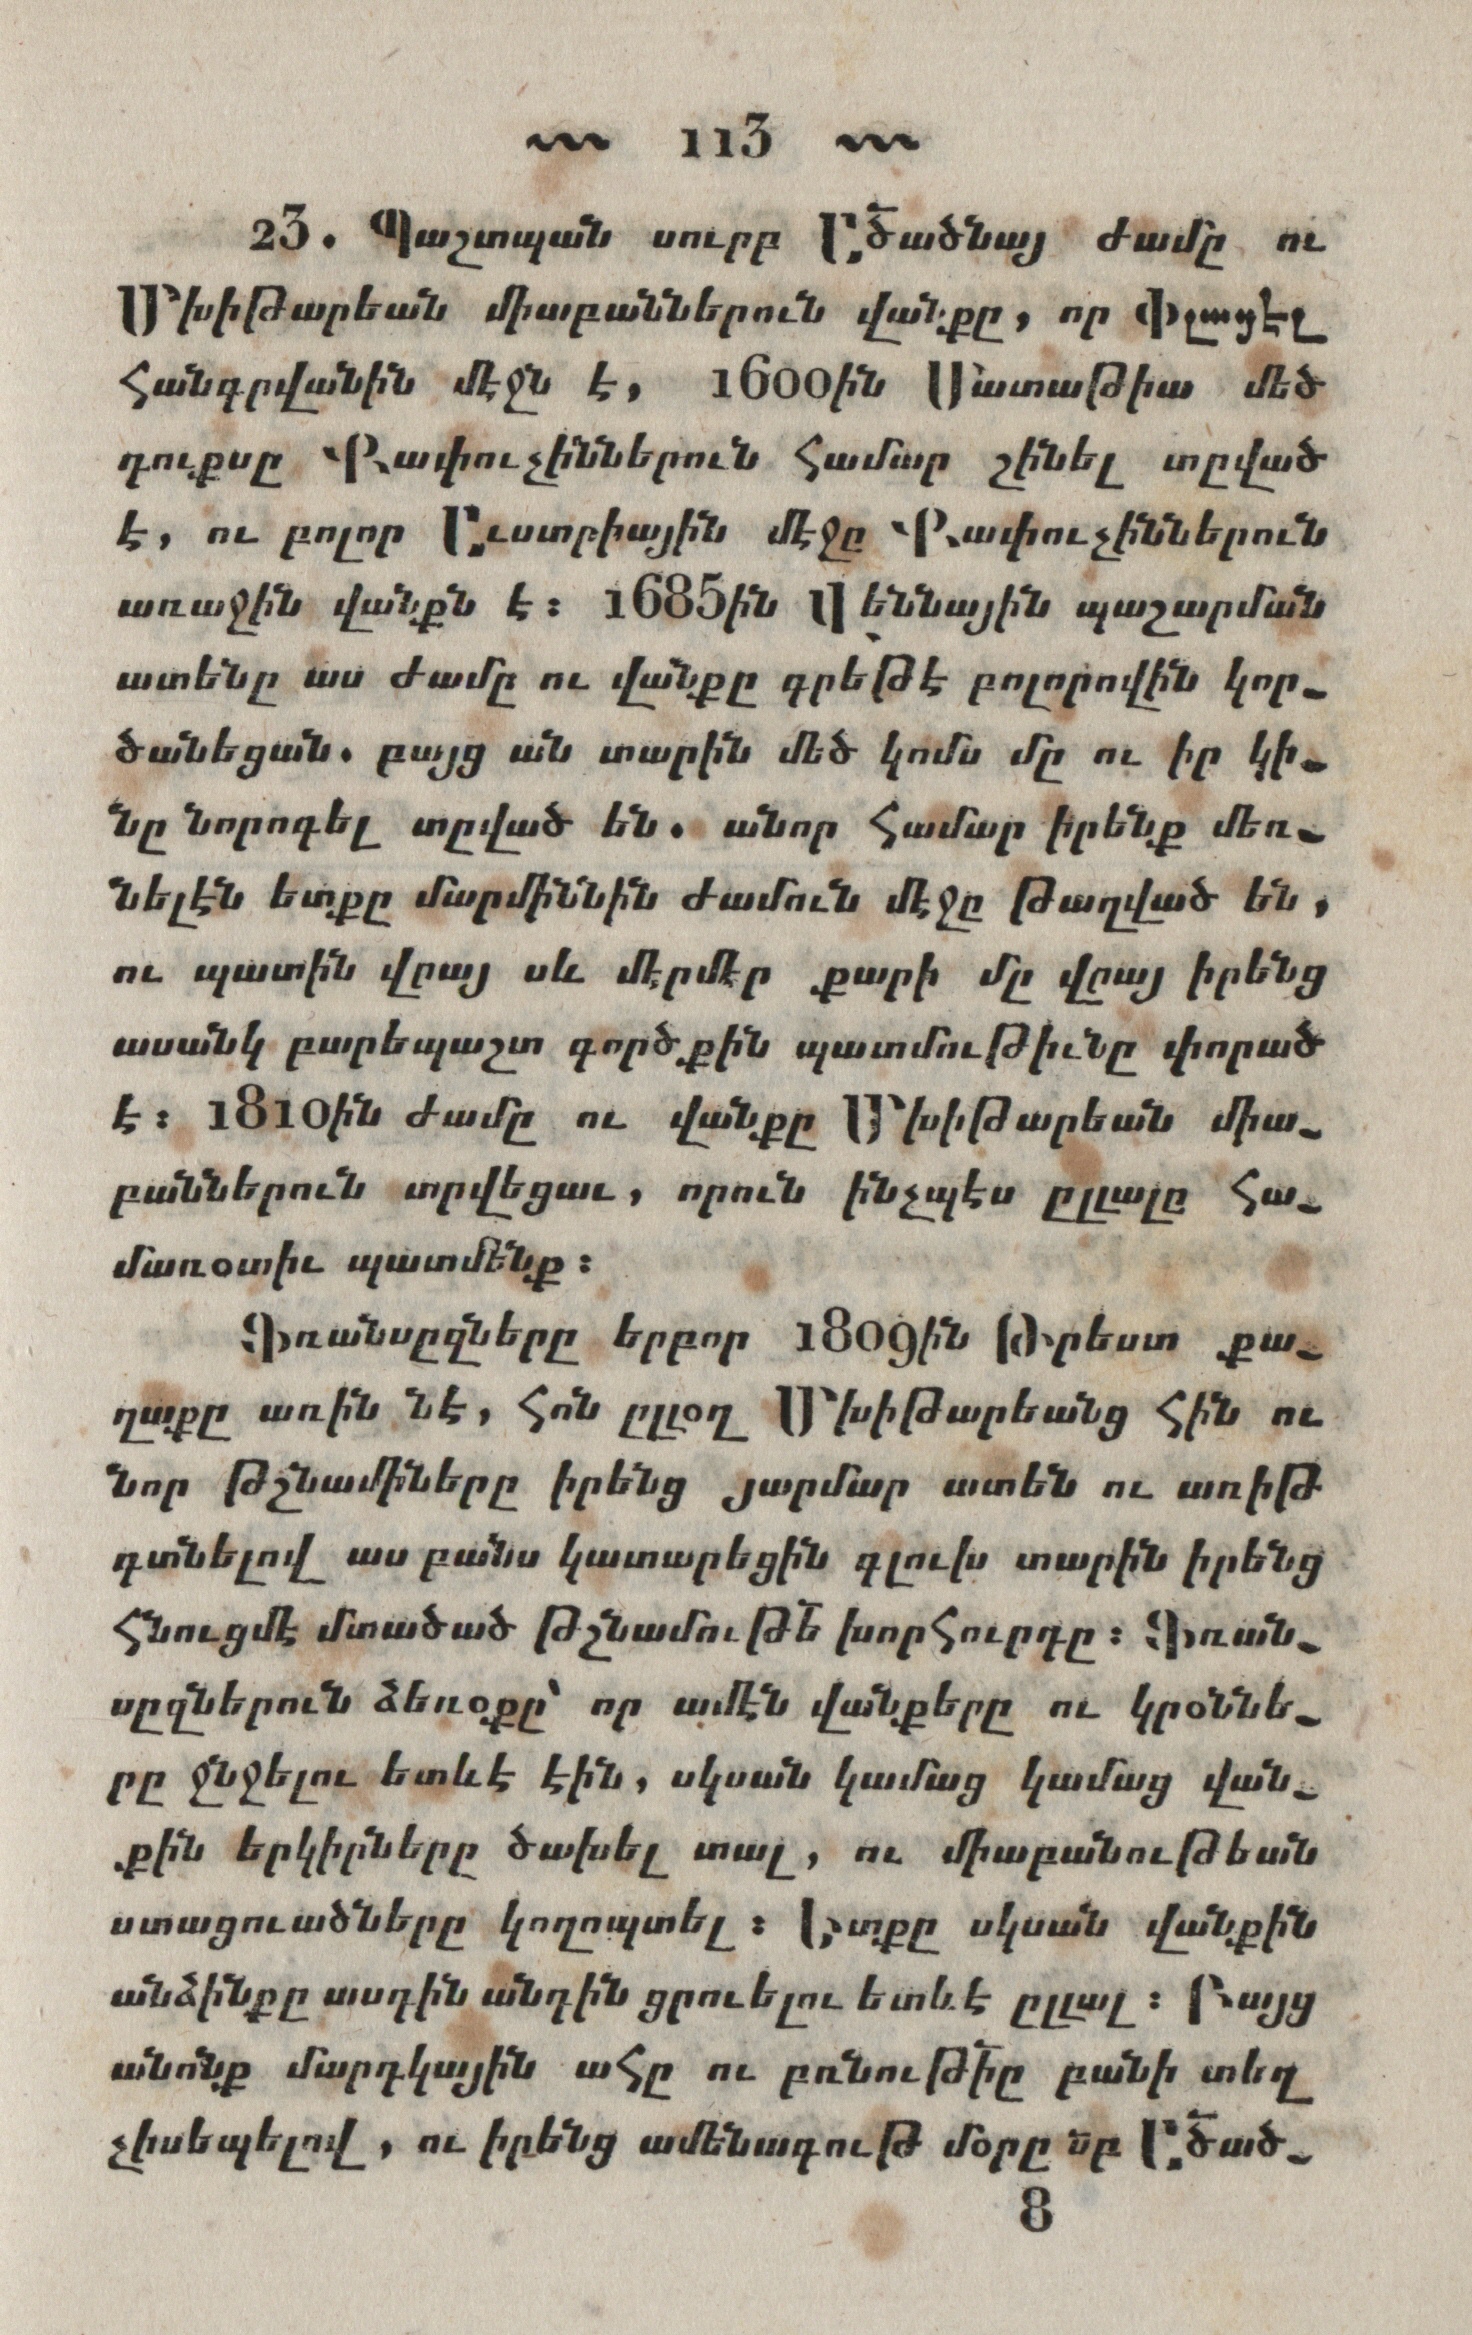 113
23. Պաշտպան սուրբ Ա՟ծածնայ ժամը ու
Մխիթարեան միաբաններուն վանքը, որ Փլացէլ
հանգրվանին մէջն է, 1600ին Մատաթիա մեծ
դուքսը Քափուչիններուն համար շինել տըված
է, ու բոլոր Աւստրիային մէջը Քափուչիններուն
առաջին վանքն է։ 1685ին Վեննային պաշարման
ատենը աս ժամը ու վանքը գրեթէ բոլորովին կոր֊
ծանեցան. բայց ան տարին մեծ կոմս մը ու իր կի֊
նը նորոգել տըված են. անոր համար իրենք մեռ֊
նելէն ետքը մարմիննին ժամուն մէջը թաղված են,
ու պատին վըայ սև մէրմէր քարի մը վըայ իրենց
ասանկ բարեպաշտ գործքին պատմութիւնը փորած
է։ 1810ին ժամը ու վանքը Մխիթարեան միա֊
բաններուն տրվեցաւ, որուն ինչպէս ըլլալը հա֊
մառօտիւ պատմենք։
Ֆռանսըզները երբոր 1809ին Թրեստ քա֊
ղաքը առին նէ, հոն ըլլօղ Մխիթարեանց հին ու
նոր թշնամիները իրենց յարմար ատեն ու առիթ
գտնելով աս բանս կատարեցին գլուխ տարին իրենց
հնուցմէ մտածած թշնամութե՟ խորհուրդը։ Ֆռան֊
սըզներուն ձեռօքը՝ որ ամէն վանքերը ու կրօննե֊
րը ջնջելու ետևէ էին, սկսան կամաց կամաց վան֊
քին երկիրները ծախել տալ, ու միաբանութեան
ստացուածները կողոպտել։ Ետքը սկսան վանքին
անձինքը ասդին անդին ցրուելու ետևէ ըլլալ։ Բայց
անոնք մարդկային ահը ու բռնութի՟ը բանի տեղ
չիսեպելով, ու իրենց ամենագութ մօրը ս՟բ Ա՟ծած֊
8